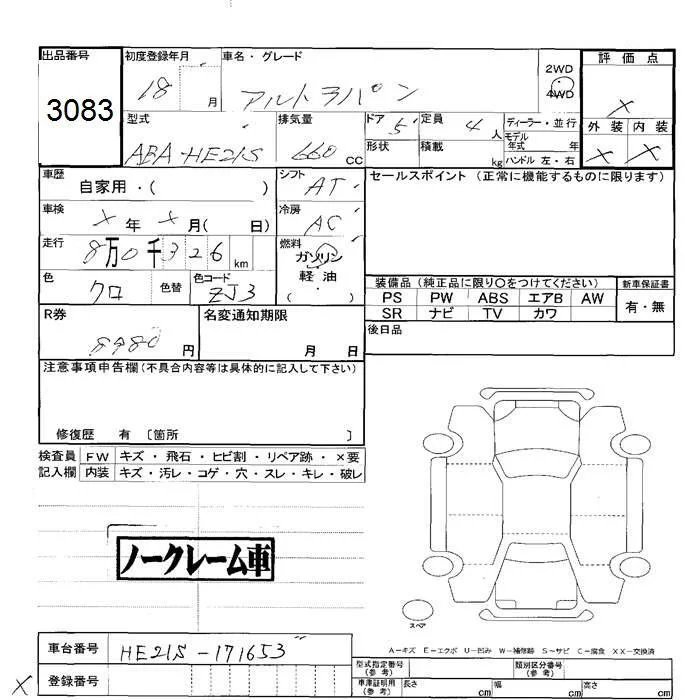 出品番号 初度登録年月 車名・グレード 2WD 4WD 評価点
3083 18 月 アルトラパン X
型式 排気量 ドア 5 定員 4 人 ディーラー・並行 外装 内装
ABA-HE21S 660 cc 形状 積載 kg モデル年式 年 X X
ハンドル 左・右
車歴 自家用・( ) シフト AT セールスポイント (正常に機能するものに限ります)
車検 X 年 X 月( 日) 冷房 AC
走行 8万0千326 km 燃料 ガソリン
軽油
( ・ )
色 クロ 色替 色コード ZJ3 装備品 (純正品に限り〇をつけてください) 新車保証書
PS PW ABS エアB AW 有・無
R券 8980 円 名変通知期限 SR ナビ TV カワ
月 日 後日品
注意事項申告欄(不具合内容等は具体的に記入して下さい)
修復歴 有 〔箇所 〕
検査員 FW キズ・飛石・ヒビ割・リペア跡・×要
記入欄 内装 キズ・汚レ・コゲ・穴・スレ・キレ・破レ
ノークレーム車
スペア
A-キズ E-エクボ U-凹み W-補修跡 S-サビ C-腐食 XX-交換済
車台番号 HE21S-171653
型式指定番号(参考) 類別区分番号(参考)
X 登録番号 車庫証明用(参考) 長さ cm 幅 cm 高さ cm